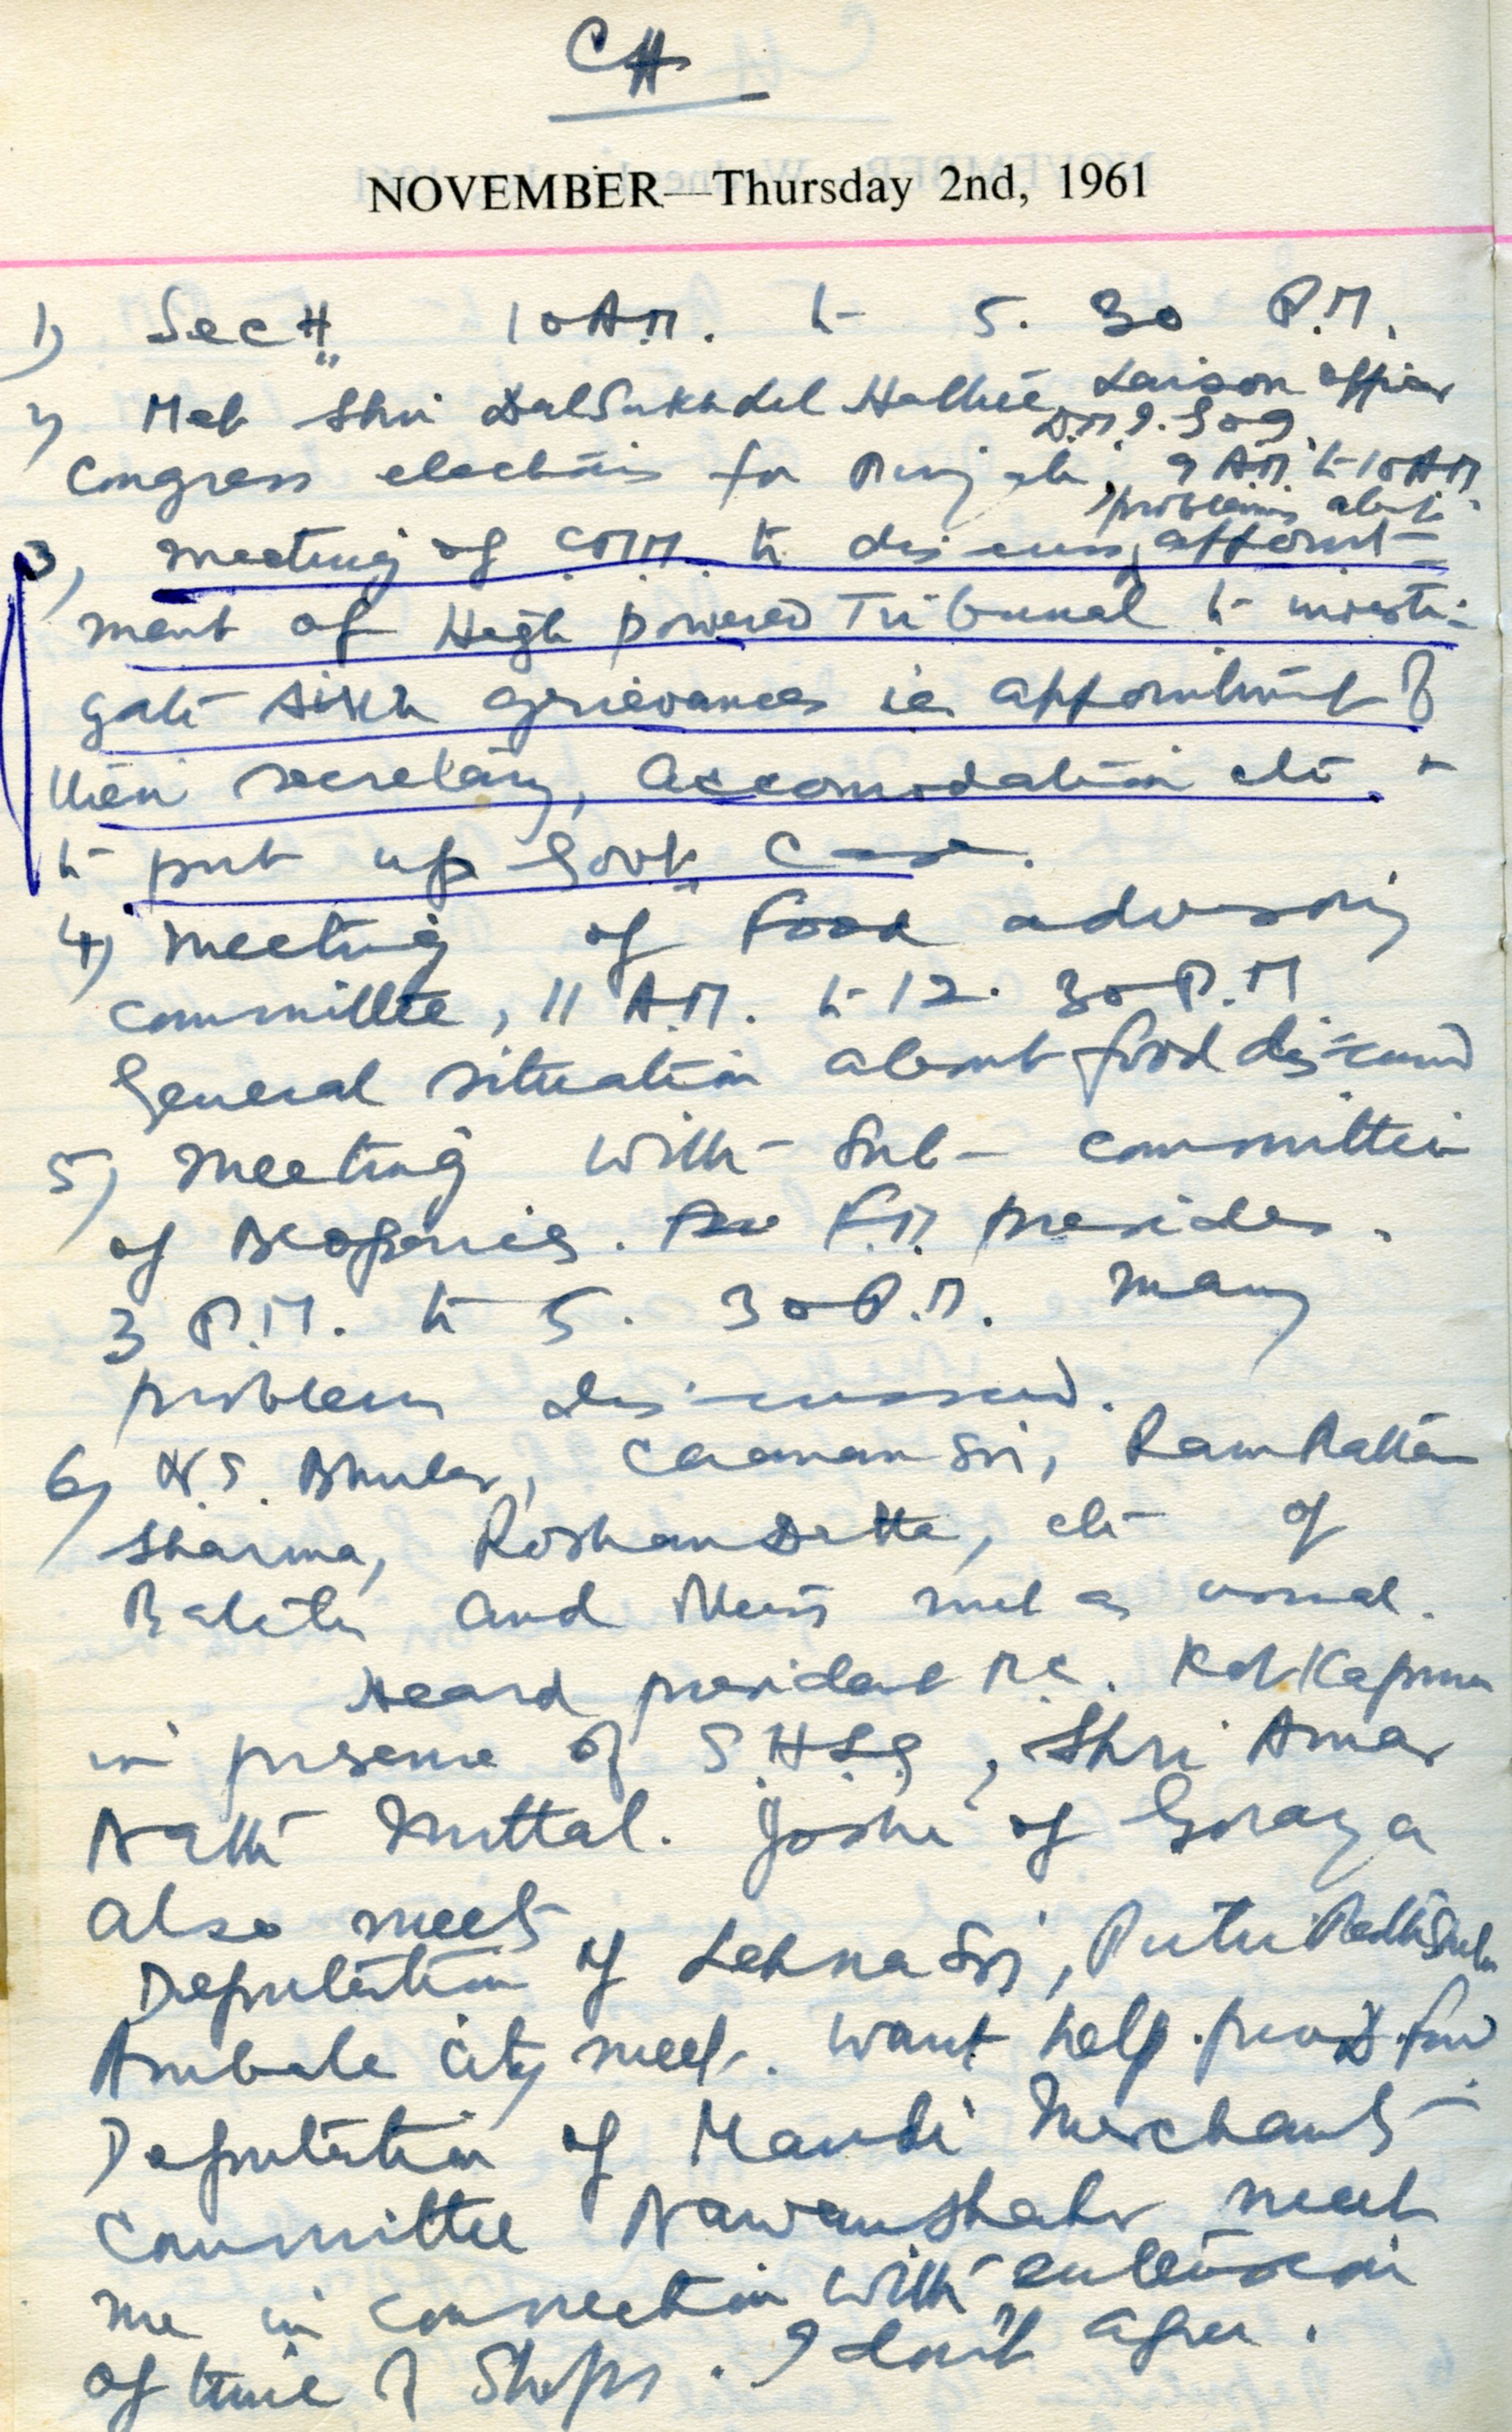 CH
NOVEMBER—Thursday 2nd, 1961
1) Sectt 10 A.M. to 5.30 P.M.
2) Met Shri Dalsukhdel Hathee, Laison officer
Congress elections for Punjab, 9 A.M. to 10 A.M
problems about
3, meeting of C.M. to discuss appoint-
ment of High powered Tribunal to investi-
gate Sikh grievances ie appointment of
their secretary, accomodation etc
to put up Govt Case.
4) Meeting of Food advisory
committee, 11 A.M. to 12.30 P.M
General situation about food discussed
5) Meeting with Sub-committee
of Beoparies. F.M. presides.
3 P.M. to 5.30 P.M. Many
problems discussed.
6) N.S. Bhuler, Ram Rattan
Sharma, Roshan Datta, etc of
Batala and met as usual.
Heard president M.C. Kot Kapura
in presence of S.H.L.G, Shri Amar
Nath Muttal. Joshi of Goraya
also meets
Deputation of Lehna Sri,
Ambala City meet. want help
Deputation of Mandi Merchants
Committee Nawanshahr meet
me in connection with extension
of time of Shops. I don't agree.